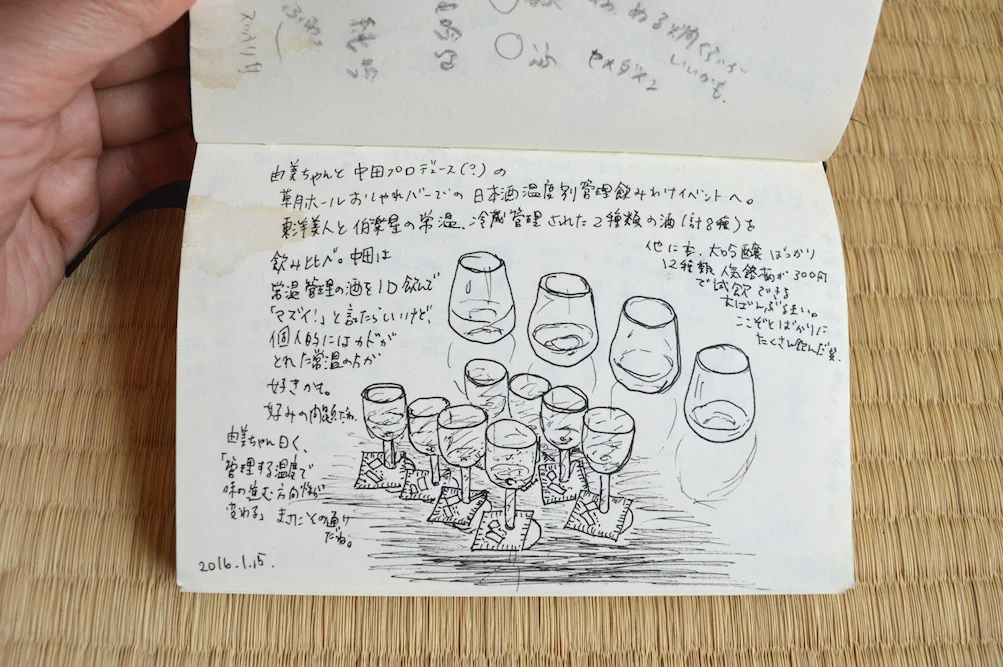 由美ちゃんと 中田プロデュース(?)の
草月ホールおしゃれバーでの 日本酒温度別管理飲みわけイベントへ。
東洋美人と伯楽星の常温、冷蔵管理された2種類の酒(計8種)を
飲み比べ。中田は
常温管理の酒を1口飲んで
「マズイ!」と言ったらしいけど、
個人的にはカドが
とれた常温の方が
好きかも。
好みの問題だね。
由美ちゃん曰く、
「管理する温度で
味の進む方向性が
変わる」まさにその通り
だね。
2016.1.15.
他にも、大吟醸ばっかり
12種類、人気銘柄が300円
で試飲できる
大ばんぶるまい。
ここぞとばかりに
たくさん飲んだ笑